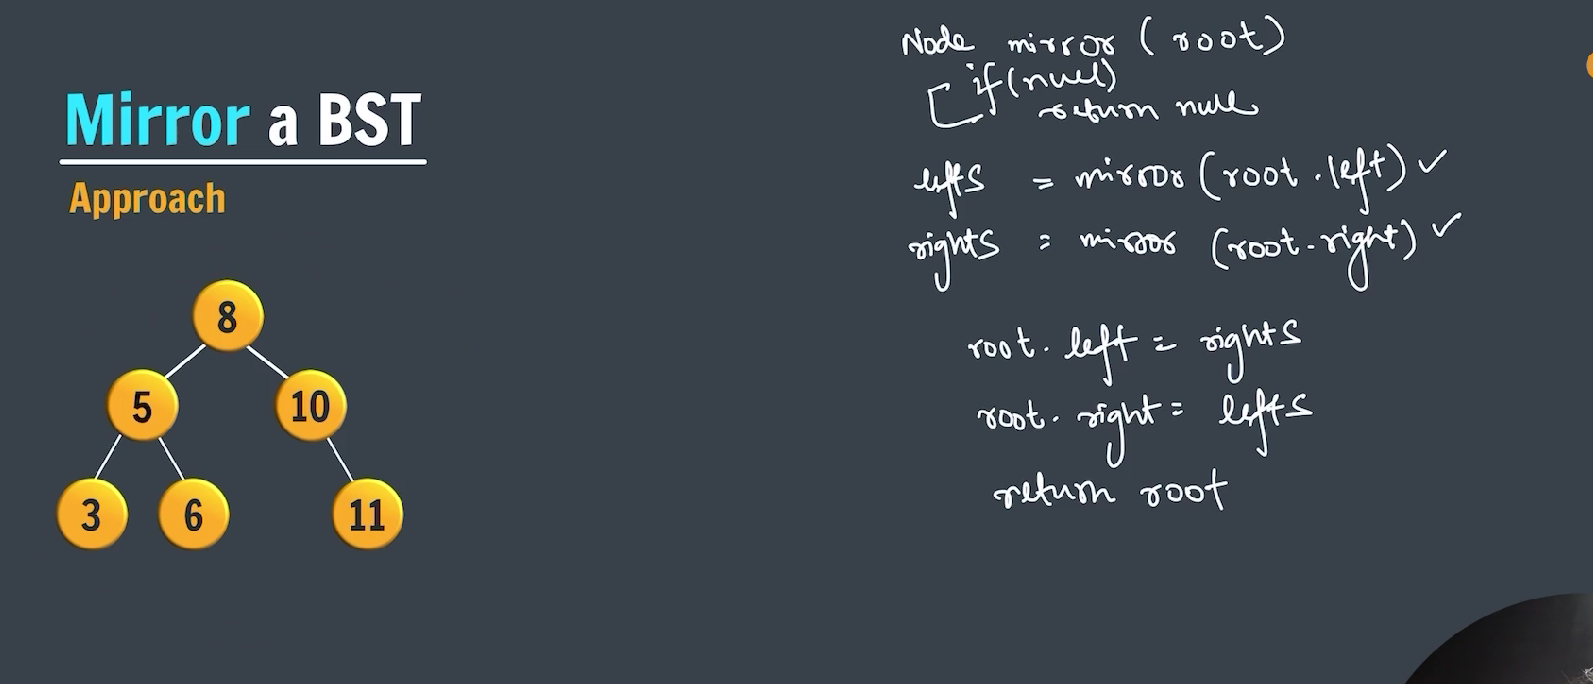 Mirror a BST
Approach
8
5 10
3 6 11
Node mirror (root)
if(null)
return null
leftS = mirror (root.left) ✓
rightS = mirror (root.right) ✓
root.left = rightS
root.right = leftS
return root